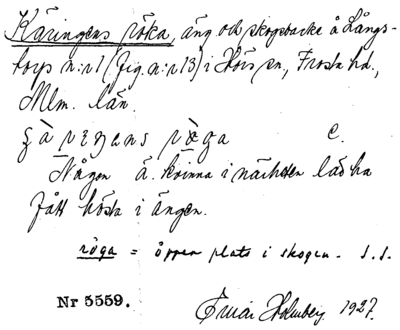 Käringens röka, äng och skogsbacke å Långs-
torps n:r 1 (fig. n:r 13) i Hörs sn, Frosta hd.,
Mlm. län.
c.
Någon ä. kvinna i nächsten lad ha
fått hösta i ängen.
röga = öppen plats i skogen. S.S.
Nr 5559. Einar Holmberg 1927.